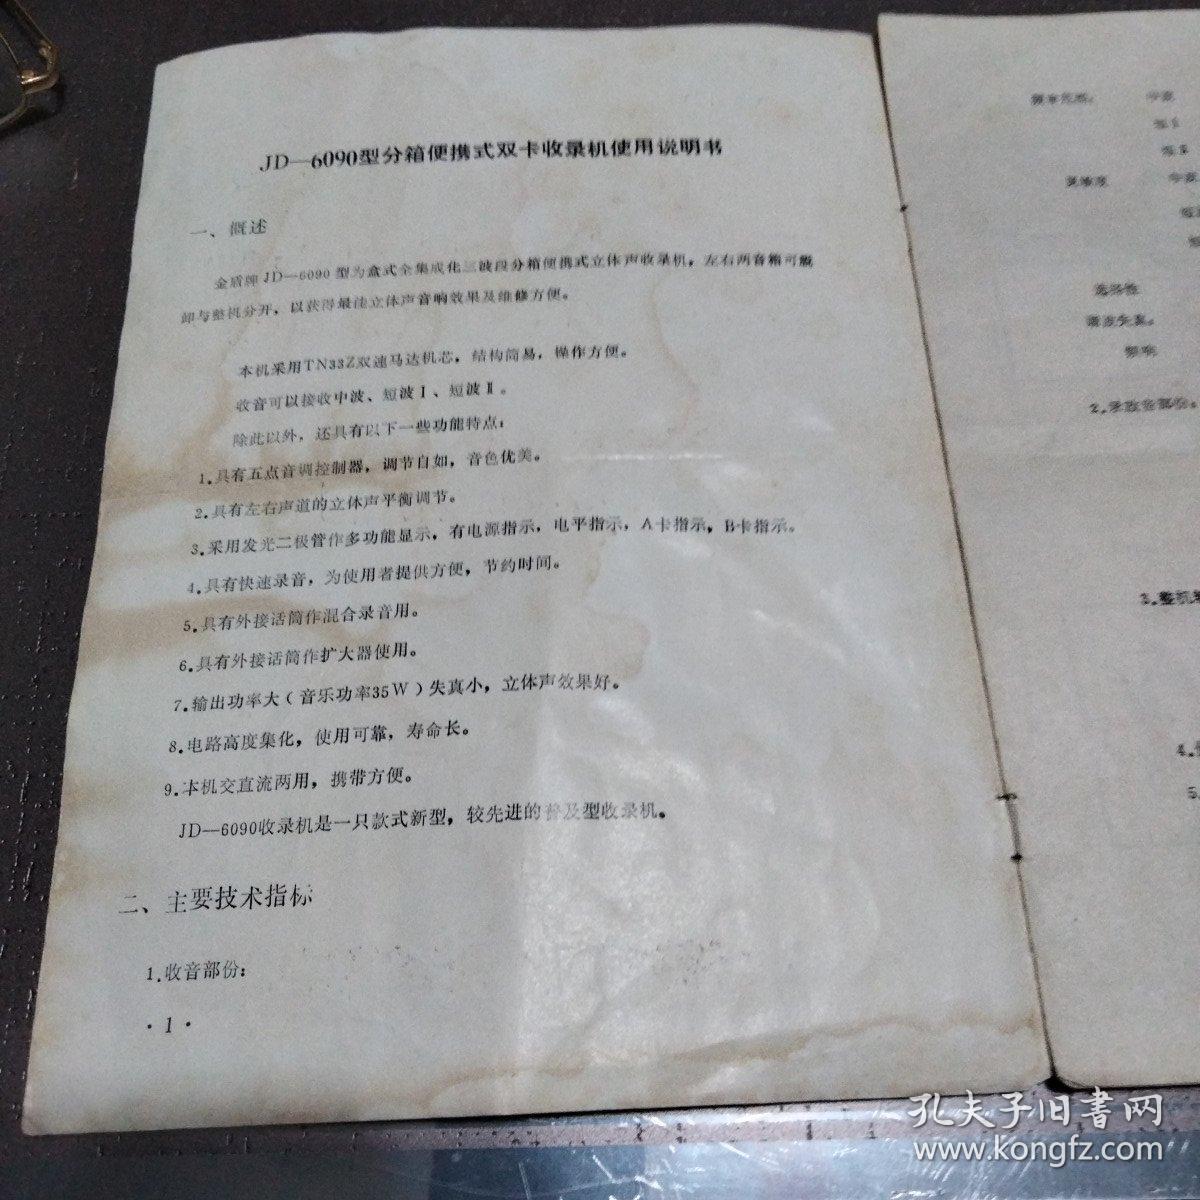 JD—6090型分箱便携式双卡收录机使用说明书
一、概述
金盾牌JD—6090型为盒式全集成化三波段分箱便携式立体声收录机，左右两音箱可脱
卸与整机分开，以获得最佳立体声音响效果及维修方便。
本机采用TN33Z双速马达机芯，结构简易，操作方便。
收音可以接收中波、短波Ⅰ、短波Ⅱ。
除此以外，还具有以下一些功能特点：
1.具有五点音调控制器，调节自如，音色优美。
2.具有左右声道的立体声平衡调节。
3.采用发光二极管作多功能显示，有电源指示，电平指示，A卡指示，B卡指示。
4.具有快速录音，为使用者提供方便，节约时间。
5.具有外接话筒作混合录音用。
6.具有外接话筒作扩大器使用。
7.输出功率大（音乐功率35W）失真小，立体声效果好。
8.电路高度集化，使用可靠，寿命长。
9.本机交直流两用，携带方便。
JD—6090收录机是一只款式新型，较先进的普及型收录机。
二、主要技术指标
1.收音部份：
·1·
频率范围： 中波
灵敏度 中波
选择性
谐波失真：
2.录放音部份。
3.整机
4.
5.
孔夫子旧书网
www.kongfz.com